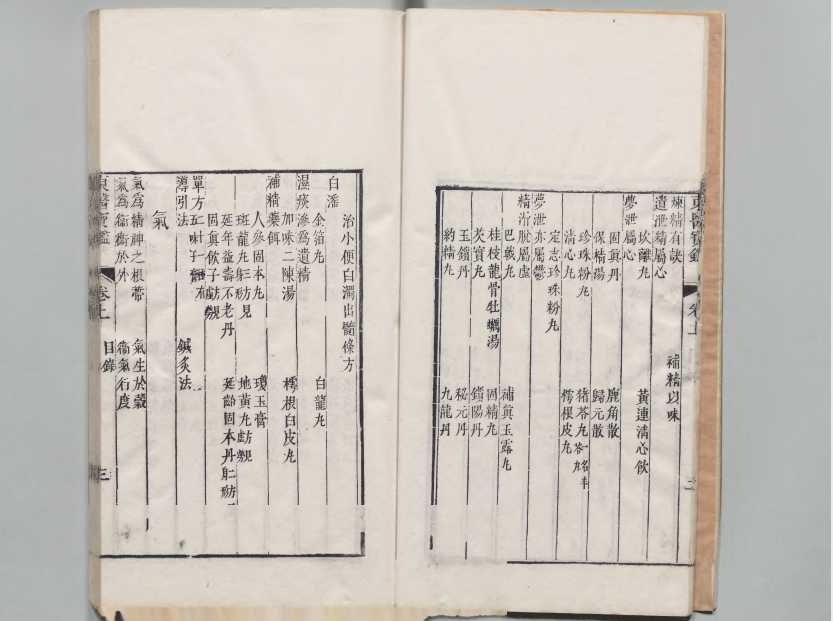 東醫寶鑑 卷上
煉精有訣 補精以味
遺泄精屬心
坎離丸 黃連清心飲
夢泄屬心
固眞丹 鹿角散
保精湯 歸元散
珍珠粉丸 猪苓丸一名半
清心丸 樗根皮丸
定志珍珠粉丸
夢泄亦屬鬱
精滑脫屬虛
巴戟丸 補眞玉露丸
桂枝龍骨牡蠣湯 固精丸
芡實丸 鎖陽丹
玉鎖丹 秘元丹
約精丸 九龍丹
治小便白濁出髓條方
白
金箔丸 白龍丸
濕痰滲爲遺精
加味二陳湯 樗根白皮丸
補精藥餌
人參固本丸 瓊玉膏
斑龍丸 地黃丸
延年益壽不老丹 延齡固本丹
固眞飮子
單方
導引法 鍼灸法
氣
氣爲精神之根蔕 氣生於穀
氣爲衛衛於外 衛氣行度
東醫寶鑑 卷上 目錄 三